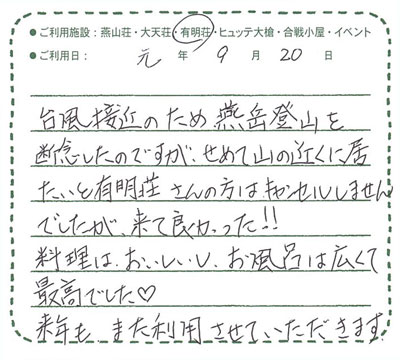 ●ご利用施設：燕山荘・大天荘・有明荘・ヒュッテ大槍・合戦小屋・イベント
●ご利用日： 元 年 9 月 20 日
台風接近のため燕岳登山を
断念したのですが、せめて山の近くに居
たいと有明荘さんの方はキャンセルしません
でしたが、来て良かった!!
料理は、おいしいし、お風呂は広くて
最高でした♡
来年も、また利用させていただきます